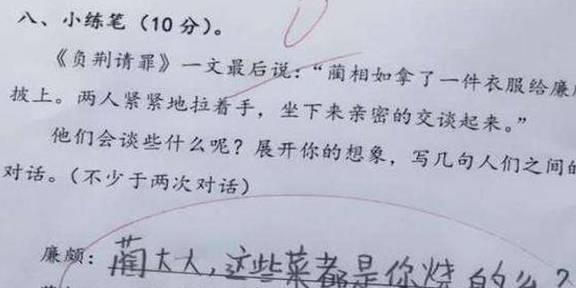 八、小练笔（10分）。
《负荆请罪》一文最后说：“蔺相如拿了一件衣服给廉
披上。两人紧紧地拉着手，坐下来亲密的交谈起来。”
他们会谈些什么呢？展开你的想象，写几句人们之间的
对话。（不少于两次对话）
廉颇：蔺大人，这些菜都是你烧的么？